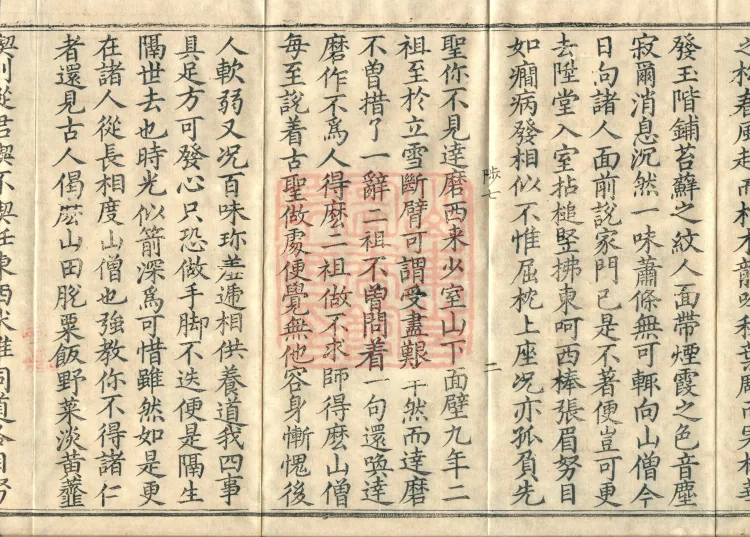 發玉階鋪苔蘚之紋人面帶煙霞之色音塵
寂爾消息沉然一味蕭條無可輒向山僧今
日向諸人面前說家門已是不著便豈可更
去陞堂入室拈槌竪拂東呵西棒張眉努目
如癎病發相似不惟屈枕上座况亦孤負先
二
聖你不見達磨西来少室山下面壁九年二
祖至於立雪斷臂可謂受盡艱辛然而達磨
不曾措了一辭二祖不曾問着一句還喚達
磨作不爲人得麽二祖做不求師得麽山僧
每至說着古聖做處便覺無他容身慚愧後
人軟弱又况百味珎羞遞相供養道我四事
具足方可發心只恐做手脚不迭便是隔生
隔世去也時光似箭深爲可惜雖然如是更
在諸人從長相度山僧也強教你不得諸仁
者還見古人偈麽山田脫粟飯野菜淡黄虀
喫則從君喫不喫任東西伏惟同道各自努